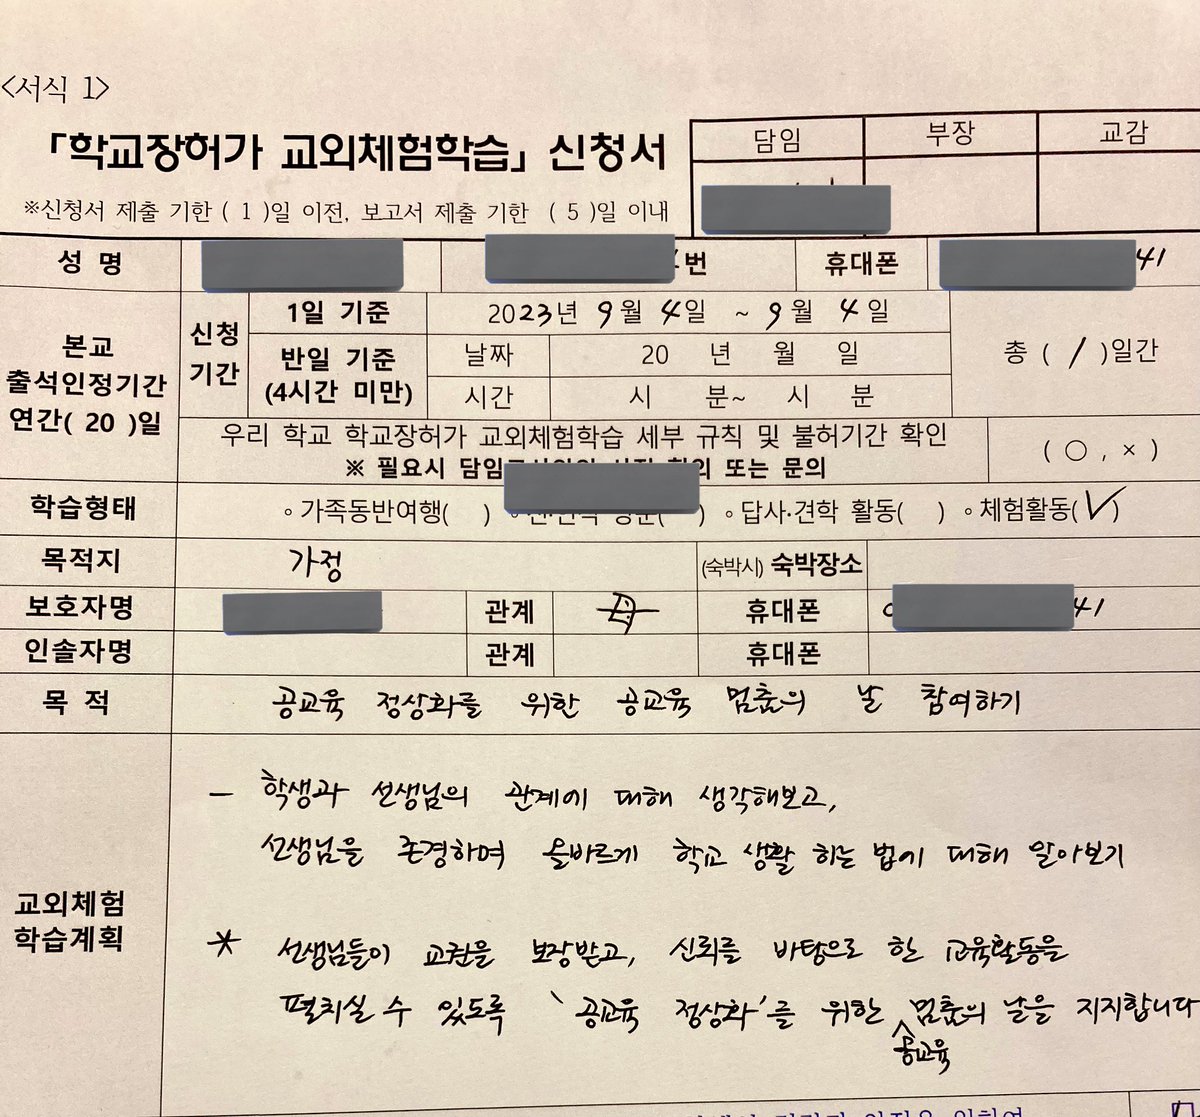 <서식 1>
「학교장허가 교외체험학습」 신청서
담임 부장 교감
※신청서 제출 기한 ( 1 )일 이전, 보고서 제출 기한 ( 5 )일 이내
성 명 번 휴대폰 41
본교 출석인정기간 연간( 20 )일
신청 기간
1일 기준 2023년 9월 4일 ~ 9월 4일
반일 기준 (4시간 미만)
날짜 20 년 월 일
시간 시 분~ 시 분
총 ( 1 )일간
우리 학교 학교장허가 교외체험학습 세부 규칙 및 불허기간 확인
※ 필요시 담임 또는 문의
( ○ , × )
학습형태 ◦가족동반여행( ) ( ) ◦답사·견학 활동( ) ◦체험활동(✓)
목적지 가정 (숙박시) 숙박장소
보호자명 관계 母 휴대폰 41
인솔자명 관계 휴대폰
목 적 공교육 정상화를 위한 공교육 멈춤의 날 참여하기
교외체험
학습계획
- 학생과 선생님의 관계에 대해 생각해보고,
선생님을 존경하며 올바르게 학교 생활 하는 법에 대해 알아보기
* 선생님들이 교권을 보장받고, 신뢰를 바탕으로 한 교육활동을
펼치실 수 있도록 '공교육 정상화'를 위한 공교육 멈춤의 날을 지지합니다